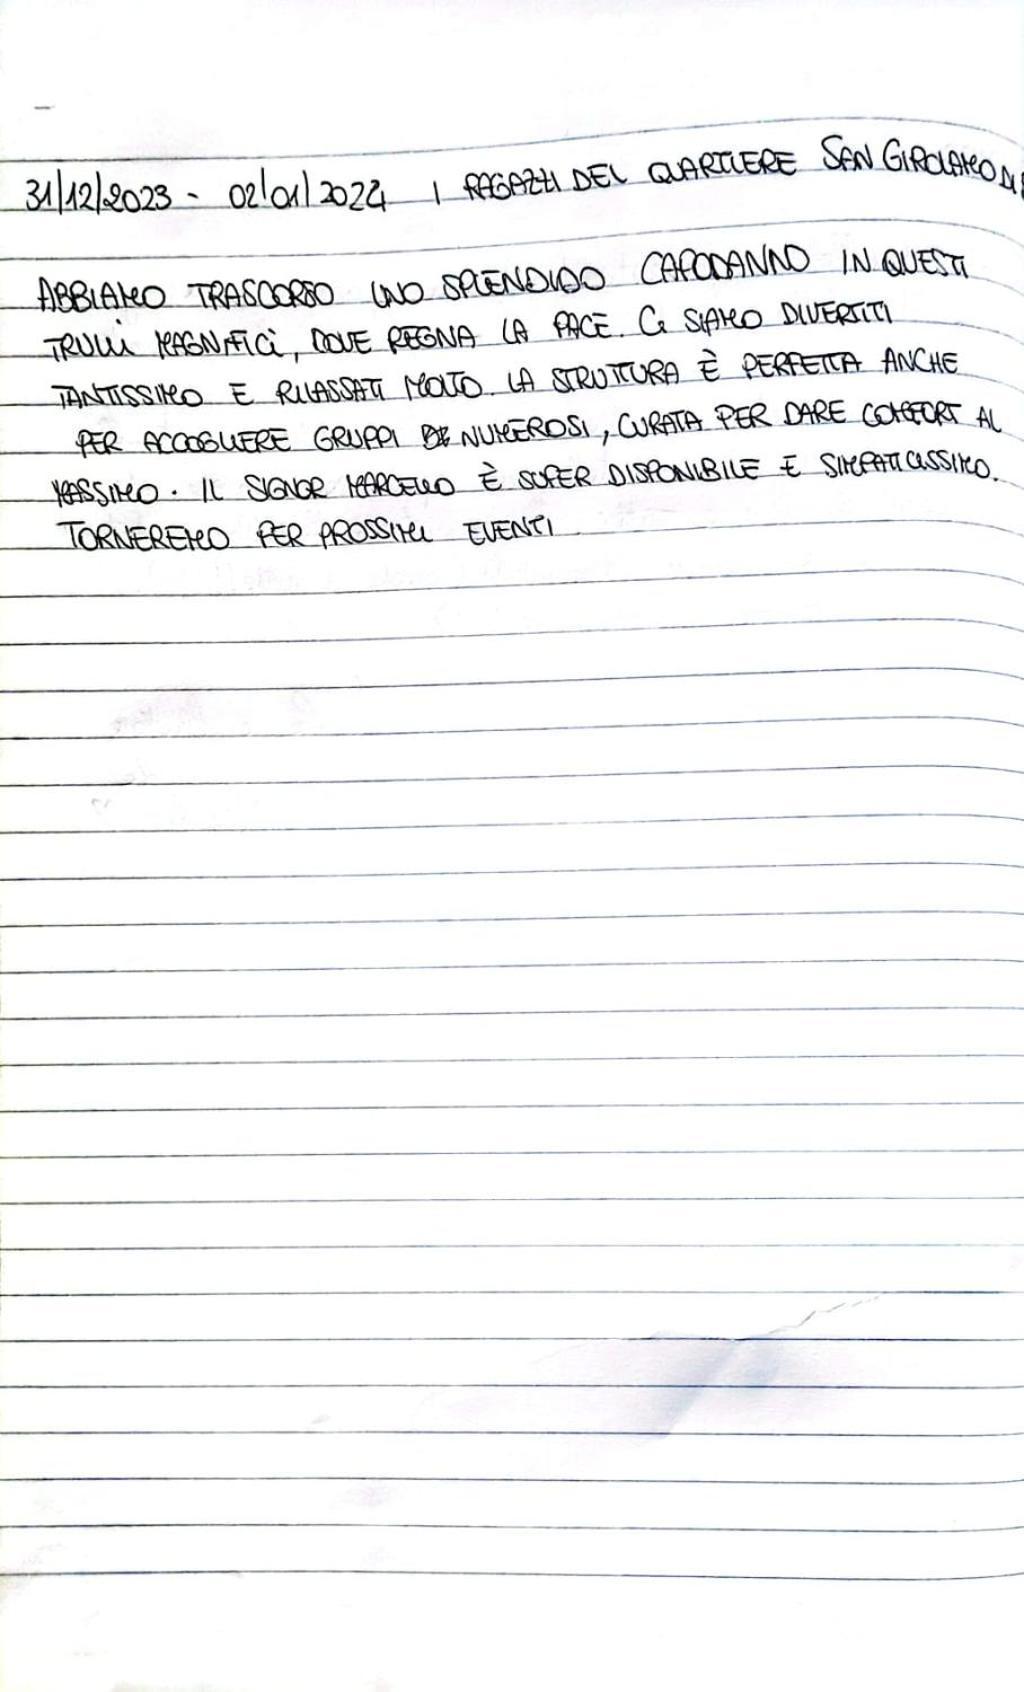 31/12/2023 - 02/01/2024 I RAGAZZI DEL QUARTIERE SAN GIROLAMO
ABBIAMO TRASCORSO UNO SPLENDIDO CAPODANNO IN QUESTI
TRULLI MAGNIFICI, DOVE REGNA LA PACE. CI SIAMO DIVERTITI
TANTISSIMO E RILASSATI MOLTO. LA STRUTTURA È PERFETTA ANCHE
PER ACCOGLIERE GRUPPI NUMEROSI, CURATA PER DARE COMFORT AL
MASSIMO. IL SIGNOR MARCELLO È SUPER DISPONIBILE E SIMPATICISSIMO.
TORNEREMO PER PROSSIMI EVENTI